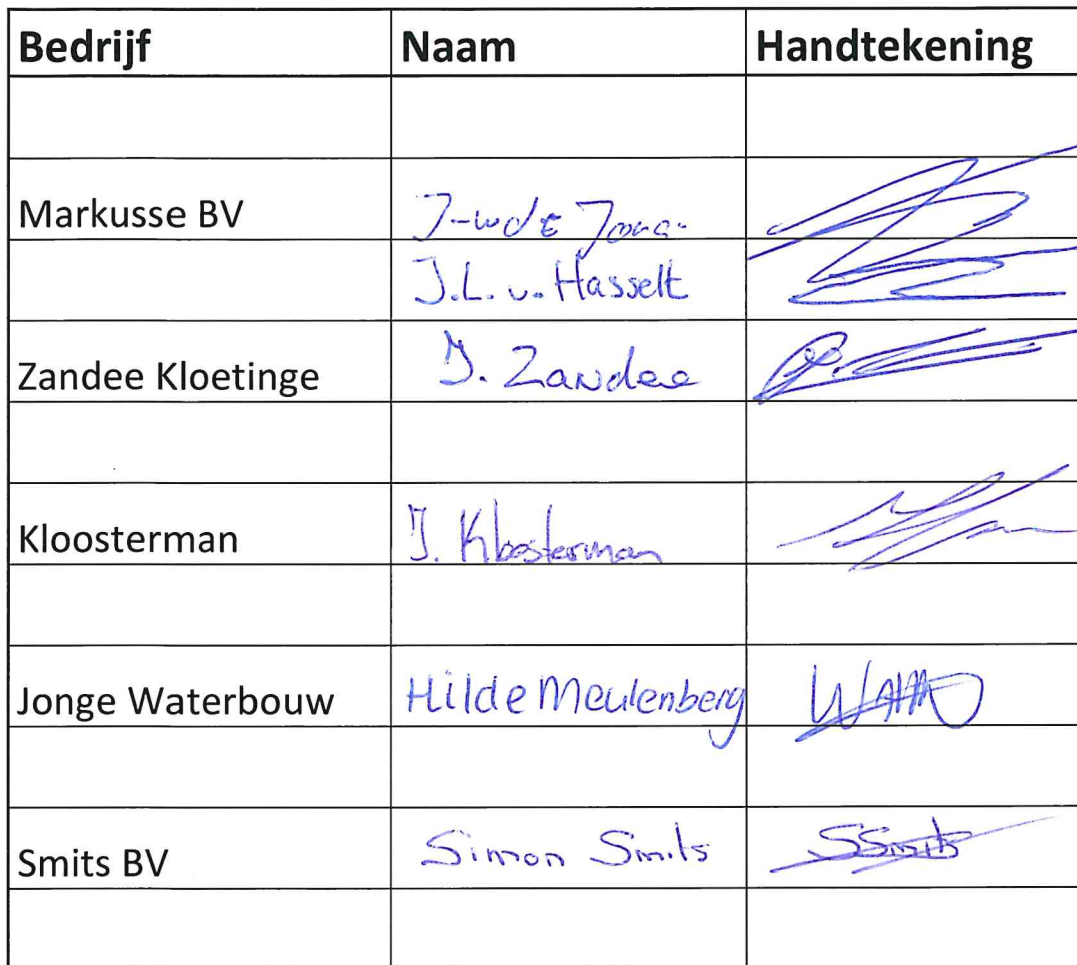 Bedrijf Naam Handtekening
Markusse BV J-W de Jonge
J.L. v. Hasselt
Zandee Kloetinge J. Zandee
Kloosterman J. Kloosterman
Jonge Waterbouw Hilde Meulenberg
Smits BV Simon Smits SSmits